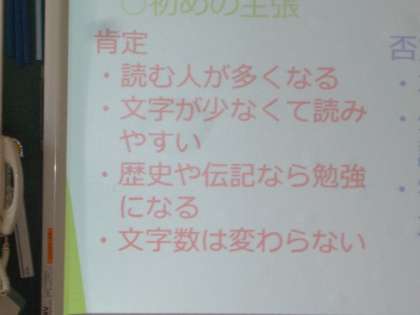 ○初めの主張
肯定
・読む人が多くなる
・文字が少なくて読み
やすい
・歴史や伝記なら勉強
になる
・文字数は変わらない
否